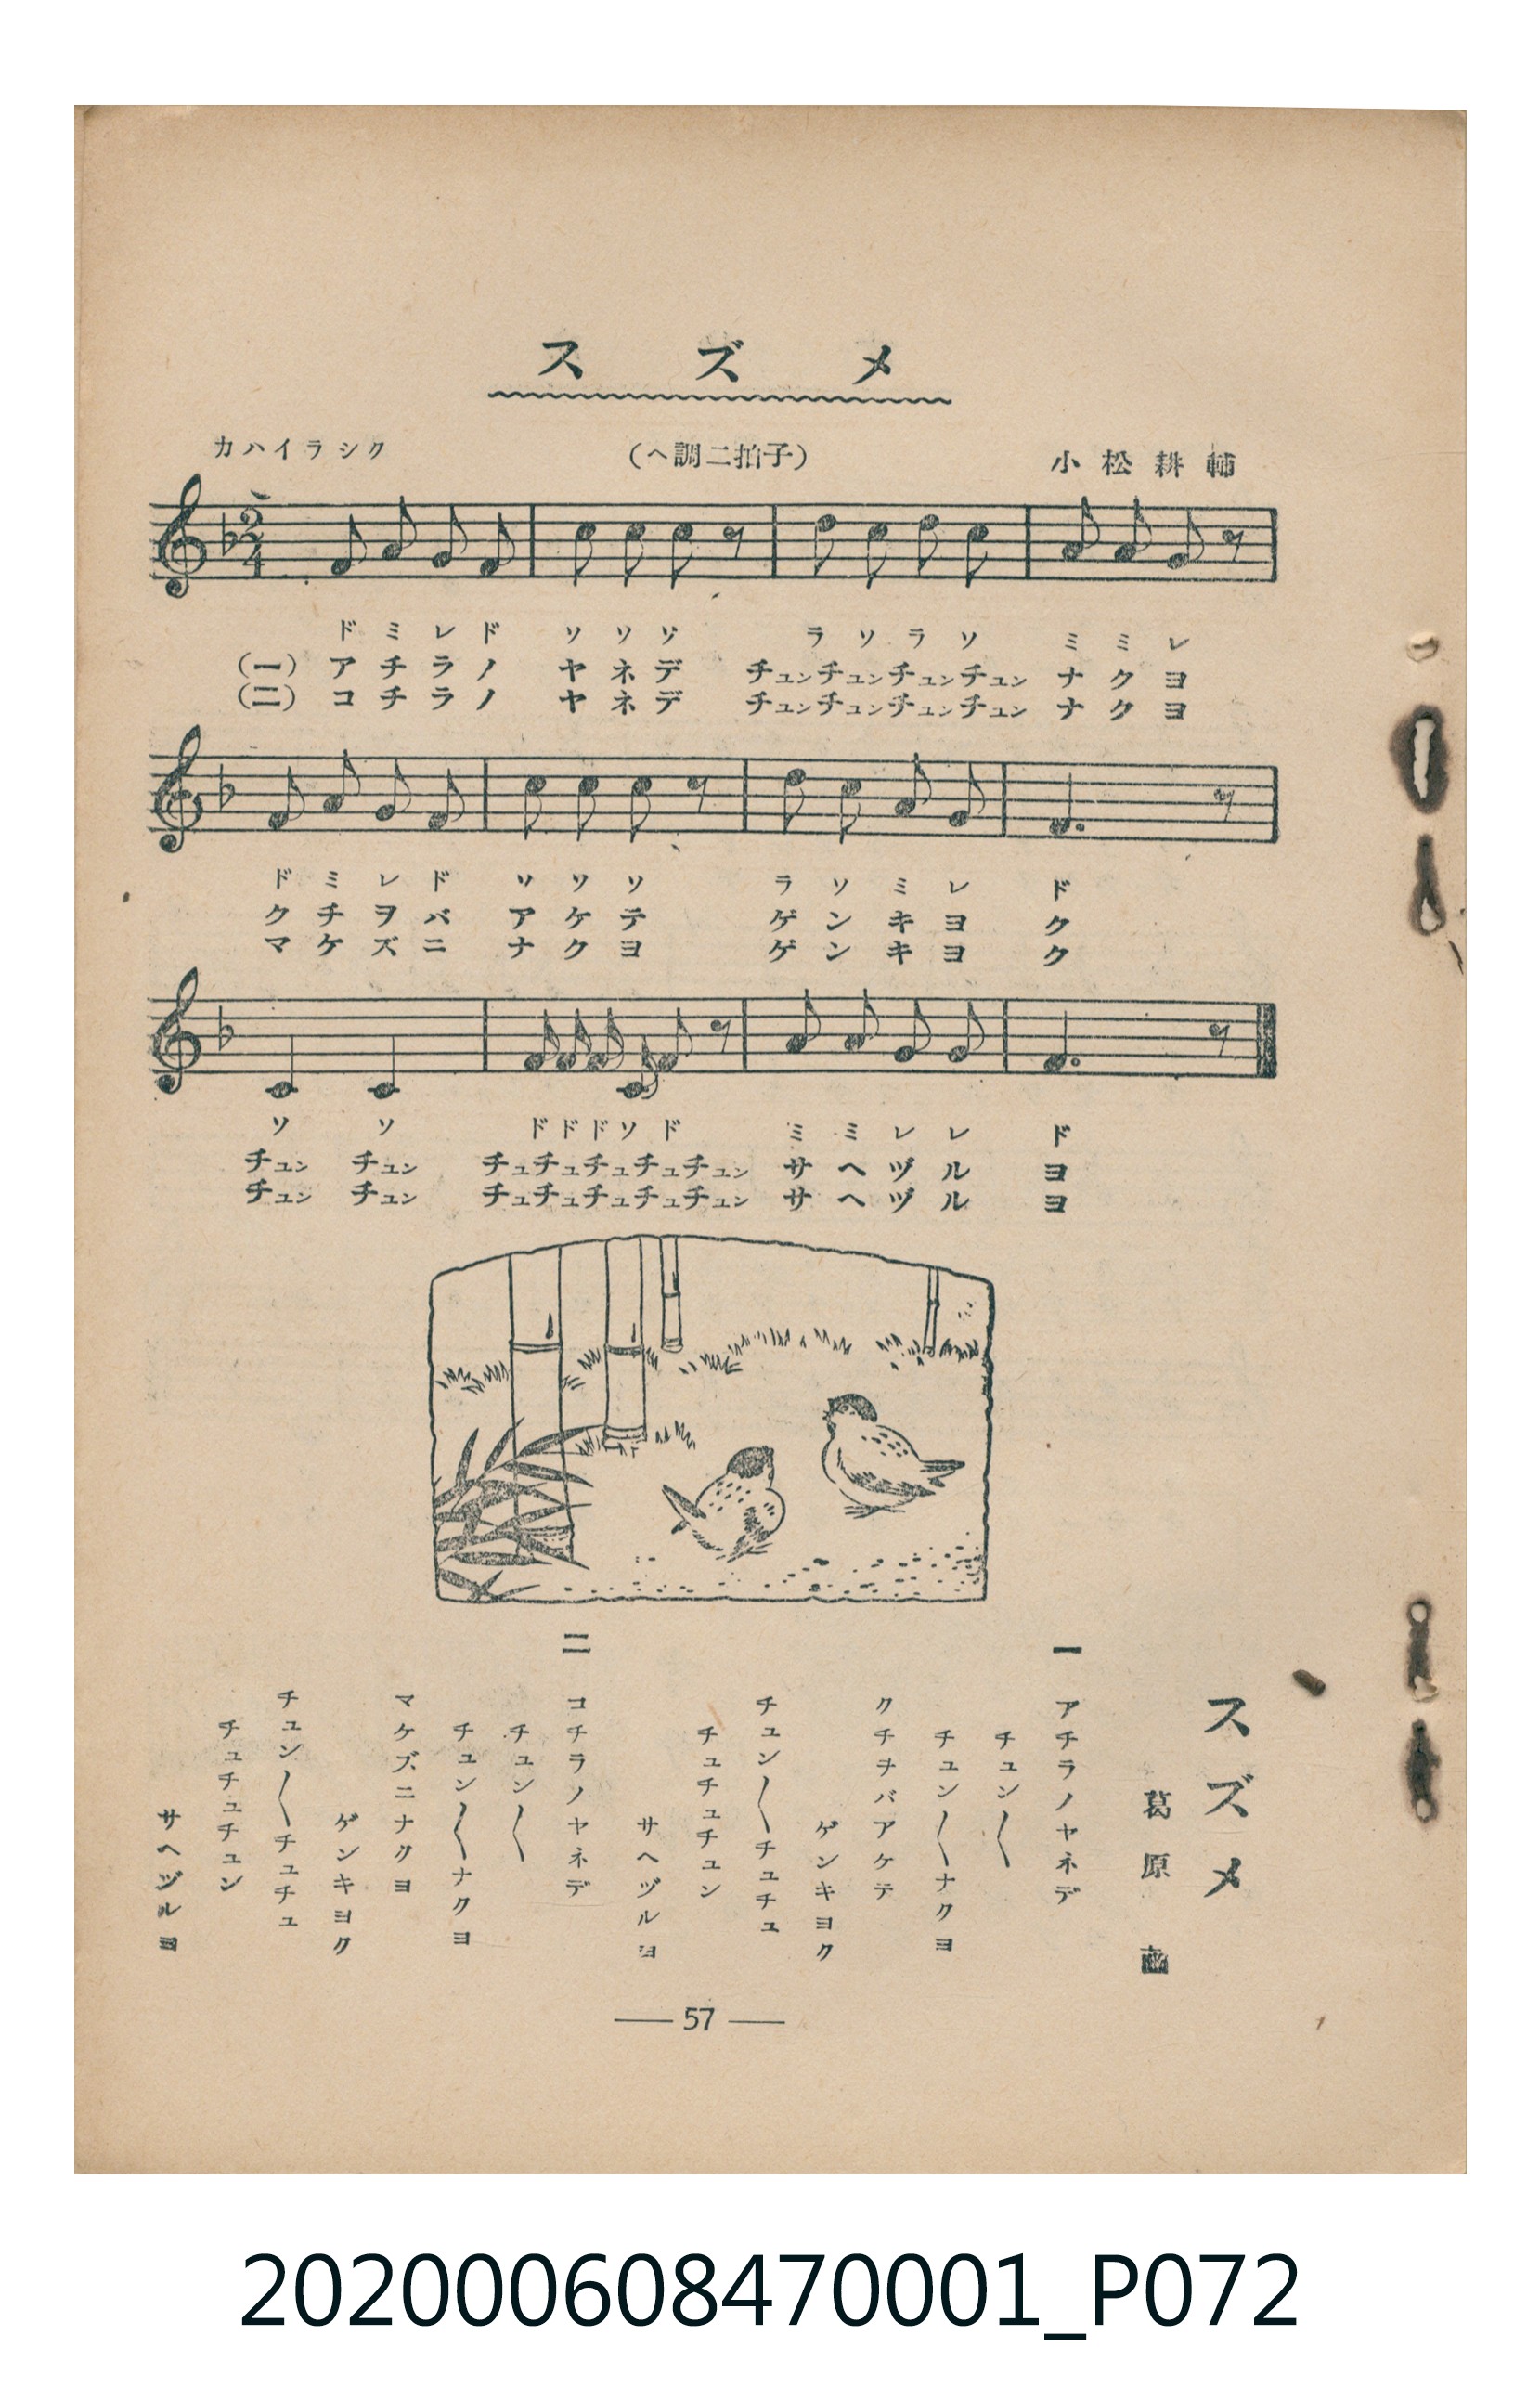 スズメ
カハイラシク
(ヘ調二拍子)
小松耕輔
2
4
ドミレド ソソソ ラソラソ ミミレ
(一) アチラノ ヤネデ チュンチュンチュンチュン ナクヨ
(二) コチラノ ヤネデ チュンチュンチュンチュン ナクヨ
ドミレド ソソソ ラソミレ ド
クチヲバ アケテ ゲンキヨ ク
マケズニ ナクヨ ゲンキヨ ク
ソ ソ ドドドソド ミミレレ ド
チュン チュン チュチュチュチュチュン サヘヅル ヨ
チュン チュン チュチュチュチュチュン サヘヅル ヨ
スズメ
葛原
一 アチラノヤネデ
チュン〳〵
チュン〳〵ナクヨ
クチヲバアケテ
ゲンキヨク
チュン〳〵チュチュ
チュチュチュン
サヘヅルヨ
二 コチラノヤネデ
チュン〳〵
チュン〳〵ナクヨ
マケズニナクヨ
ゲンキヨク
チュン〳〵チュチュ
チュチュチュン
サヘヅルヨ
— 57 —
202000608470001_P072